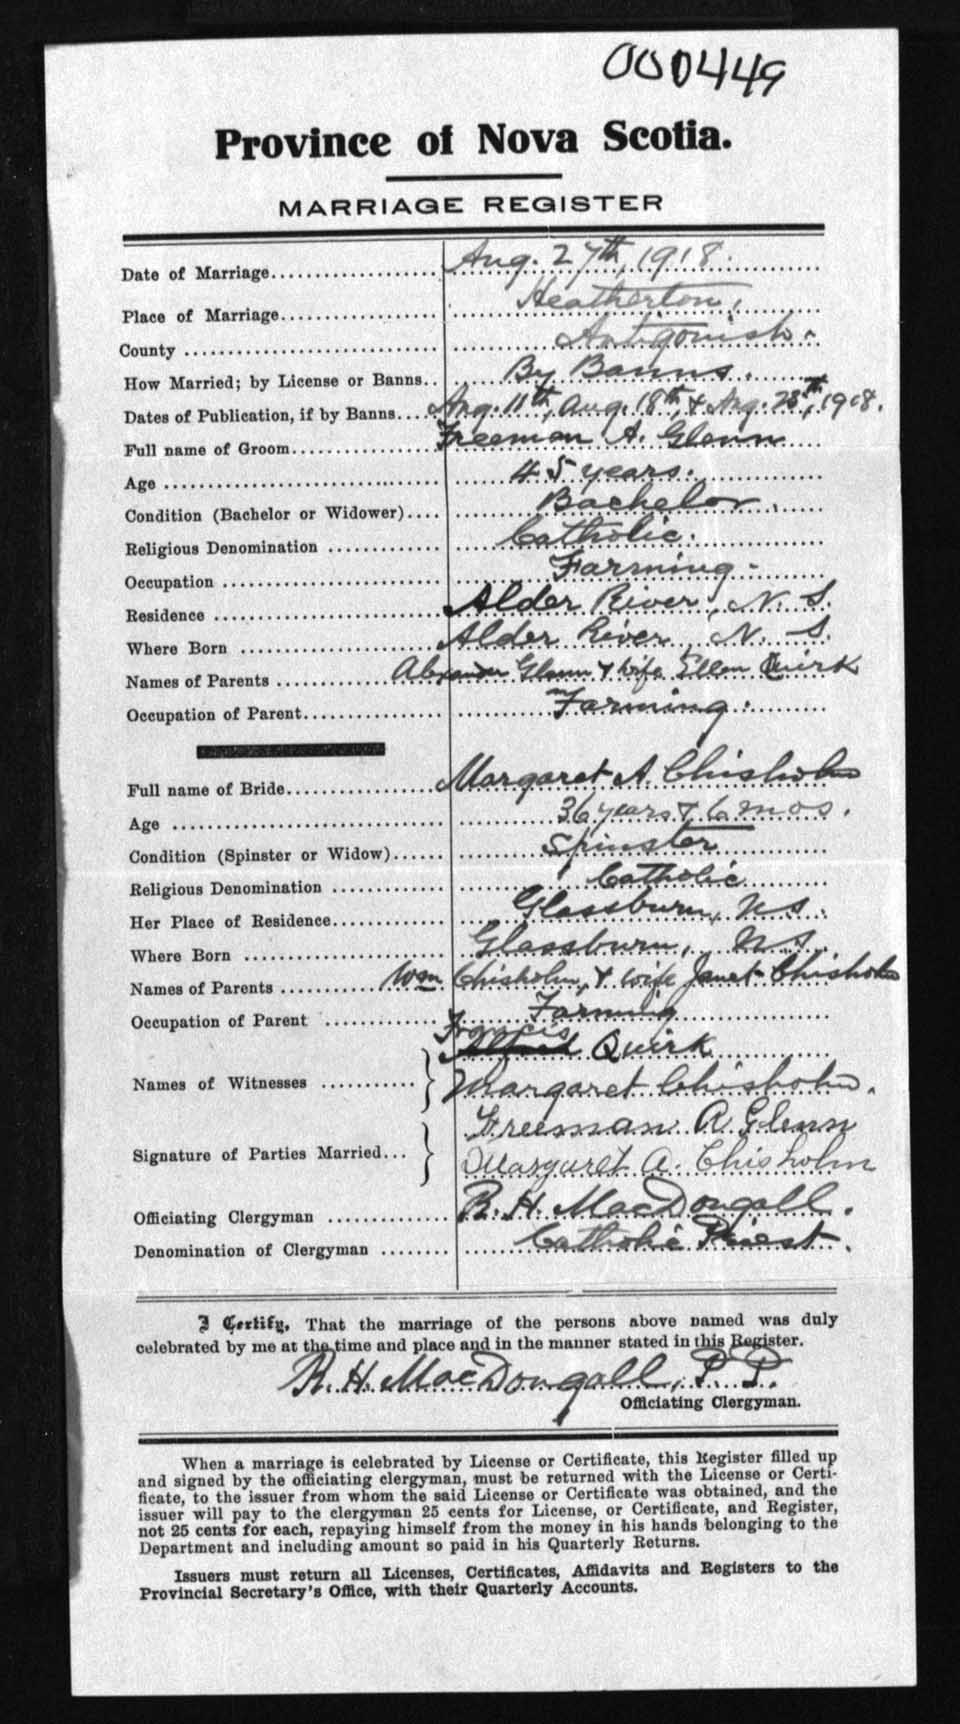 000449
Province of Nova Scotia.
MARRIAGE REGISTER
Date of Marriage Aug. 27th, 1918.
Place of Marriage Heatherton,
County Antigonish.
How Married; by License or Banns By Banns.
Dates of Publication, if by Banns Aug. 11th, Aug. 18th, & Aug. 25th, 1918.
Full name of Groom Freeman A. Glenn
Age 45 years.
Condition (Bachelor or Widower) Bachelor.
Religious Denomination Catholic.
Occupation Farming.
Residence Alder River, N. S.
Where Born Alder River, N. S.
Names of Parents Alexander Glenn & wife Ellen Quirk
Occupation of Parent Farming.
Full name of Bride Margaret A. Chisholm
Age 36 years & 6 mos.
Condition (Spinster or Widow) Spinster
Religious Denomination Catholic
Her Place of Residence Glassburn, N S.
Where Born Glassburn, N S.
Names of Parents Wm Chisholm, & wife Janet Chisholm
Occupation of Parent Farming
Francis
Names of Witnesses } Alfred Quirk
Margaret Chisholm.
Signature of Parties Married... } Freeman A Glenn
Margaret A. Chisholm
Officiating Clergyman R. H. MacDougall.
Denomination of Clergyman Catholic Priest.
I Certify, That the marriage of the persons above named was duly
celebrated by me at the time and place and in the manner stated in this Register.
R. H. MacDougall, P. P.
Officiating Clergyman.
When a marriage is celebrated by License or Certificate, this Register filled up
and signed by the officiating clergyman, must be returned with the License or Certi-
ficate, to the issuer from whom the said License or Certificate was obtained, and the
issuer will pay to the clergyman 25 cents for License, or Certificate, and Register,
not 25 cents for each, repaying himself from the money in his hands belonging to the
Department and including amount so paid in his Quarterly Returns.
Issuers must return all Licenses, Certificates, Affidavits and Registers to the
Provincial Secretary's Office, with their Quarterly Accounts.